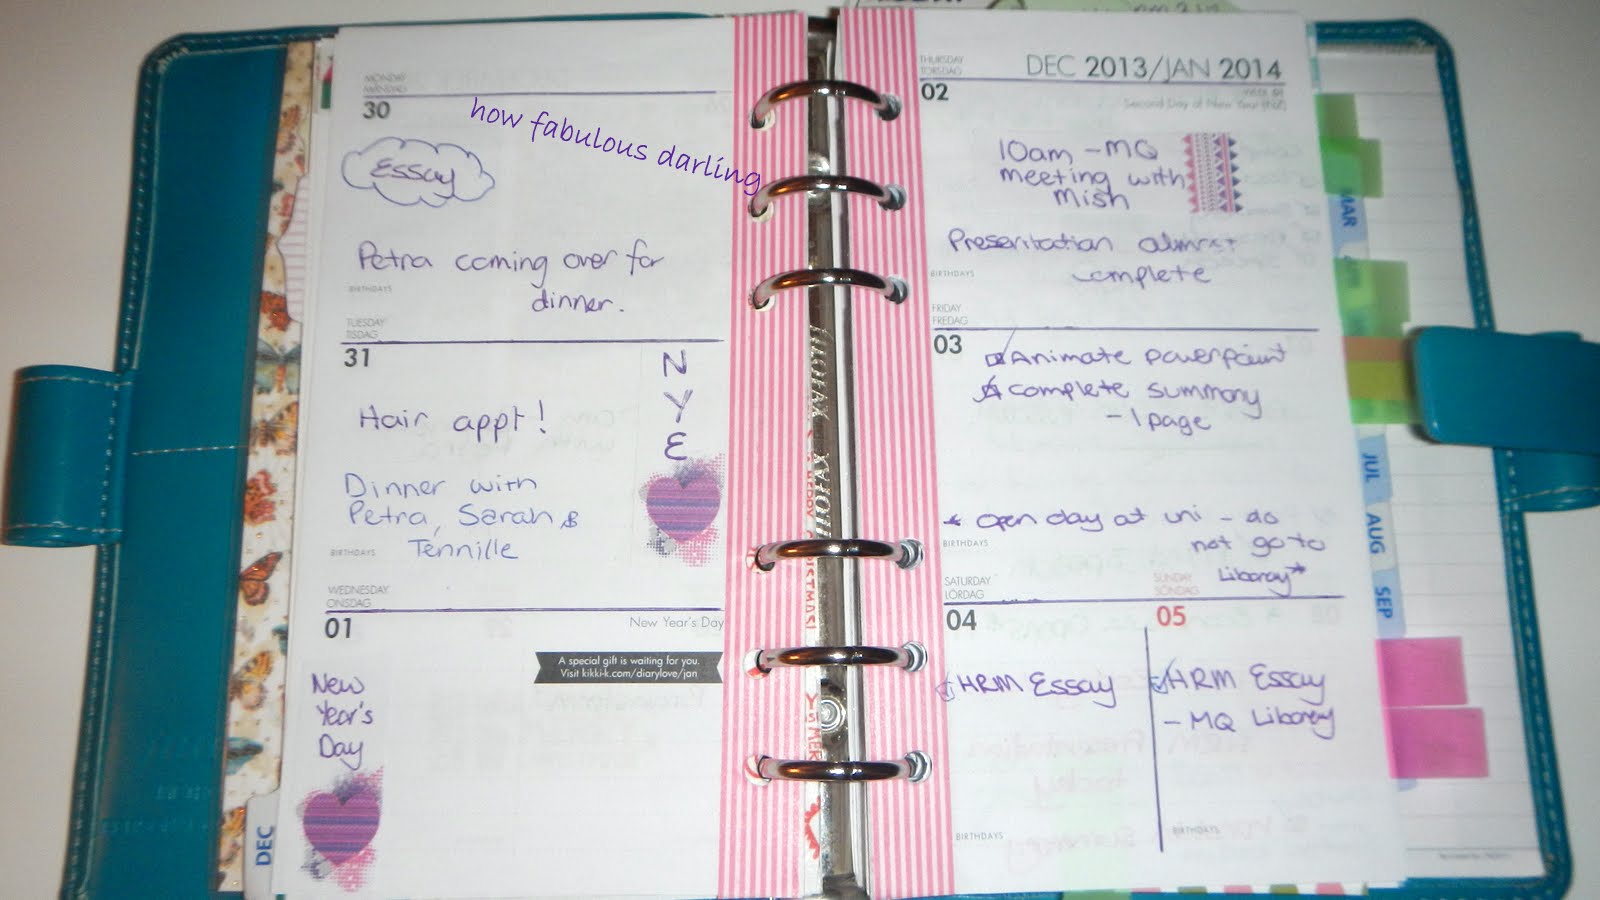 MONDAY
MÅNDAG
30
how fabulous darling
Essay
Petra coming over for
dinner.
BIRTHDAYS
TUESDAY
TISDAG
31
N
Y
E
Hair appt!
Dinner with
Petra, Sarah &
Tennille
BIRTHDAYS
WEDNESDAY
ONSDAG
01
New Year's Day
A special gift is waiting for you.
Visit kikki-k.com/diarylove/jan
New
Year's
Day
DEC
THURSDAY
TORSDAG
DEC 2013/JAN 2014
02
WEEK 01
Second Day of New Year (NZ)
10am - MQ
meeting with
Mish
Presentation almost
complete
BIRTHDAYS
FRIDAY
FREDAG
03
Animate powerpoint
complete summary
- 1 page
* Open day at uni - do
not go to
Library *
BIRTHDAYS
SATURDAY
LÖRDAG
04
HRM Essay
BIRTHDAYS
SUNDAY
SÖNDAG
05
HRM Essay
- MQ Library
BIRTHDAYS
MAR
JUL
AUG
SEP